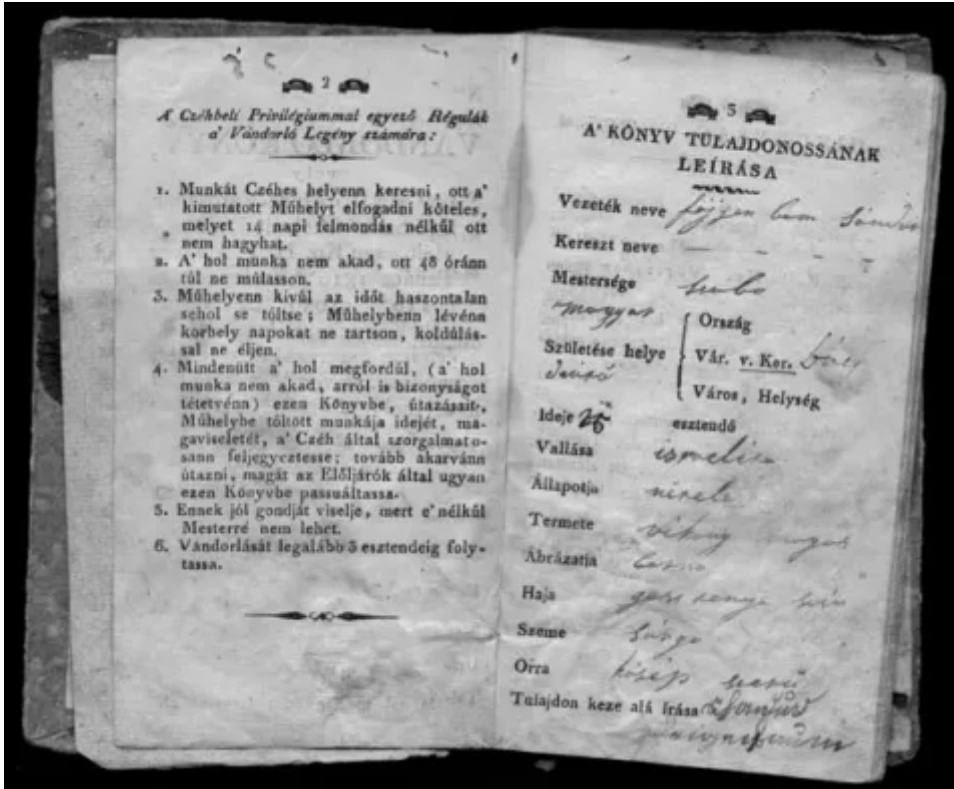 2
A' Czéhbeli Privilégiummal egyező Régulák
a' Vándorló Legény számára:
1. Munkát Czéhes helyenn keresni, ott a'
kimutatott Műhelyt elfogadni köteles,
melyet 14 napi felmondás nélkűl ott
nem hagyhat.
2. A' hol munka nem akad, ott 48 óránn
túl ne múlasson.
3. Műhelyenn kivűl az időt haszontalan
sehol se töltse; Műhelybenn lévénn
korhely napokat ne tartson, koldúlás-
sal ne éljen.
4. Mindenütt a' hol megfordúl, (a' hol
munka nem akad, arról is bizonyságot
tétetvénn) ezen Könyvbe, útazásait,
Műhelybe töltött munkája idejét, ma-
gaviseletét, a' Czéh által szorgalmato-
sann feljegyeztesse; tovább akarvánn
útazni, magát az Előljárók által ugyan
ezen Könyvbe passuáltassa.
5. Ennek jól gondját viselje, mert e' nélkűl
Mesterré nem lehet.
6. Vándorlását legalább 3 esztendeig foly-
tassa.
3
A' KÖNYV TULAJDONOSSÁNAK
LEÍRÁSA
Vezeték neve
Kereszt neve – – – –
Mestersége szabo
magyar Ország
Születése helye Vár. v. Ker.
Város, Helység
Ideje 25 esztendő
Vallása
Állapotja
Termete magos
Ábrázatja
Haja
Szeme sárga
Orra közép szerű
Tulajdon keze alá írása